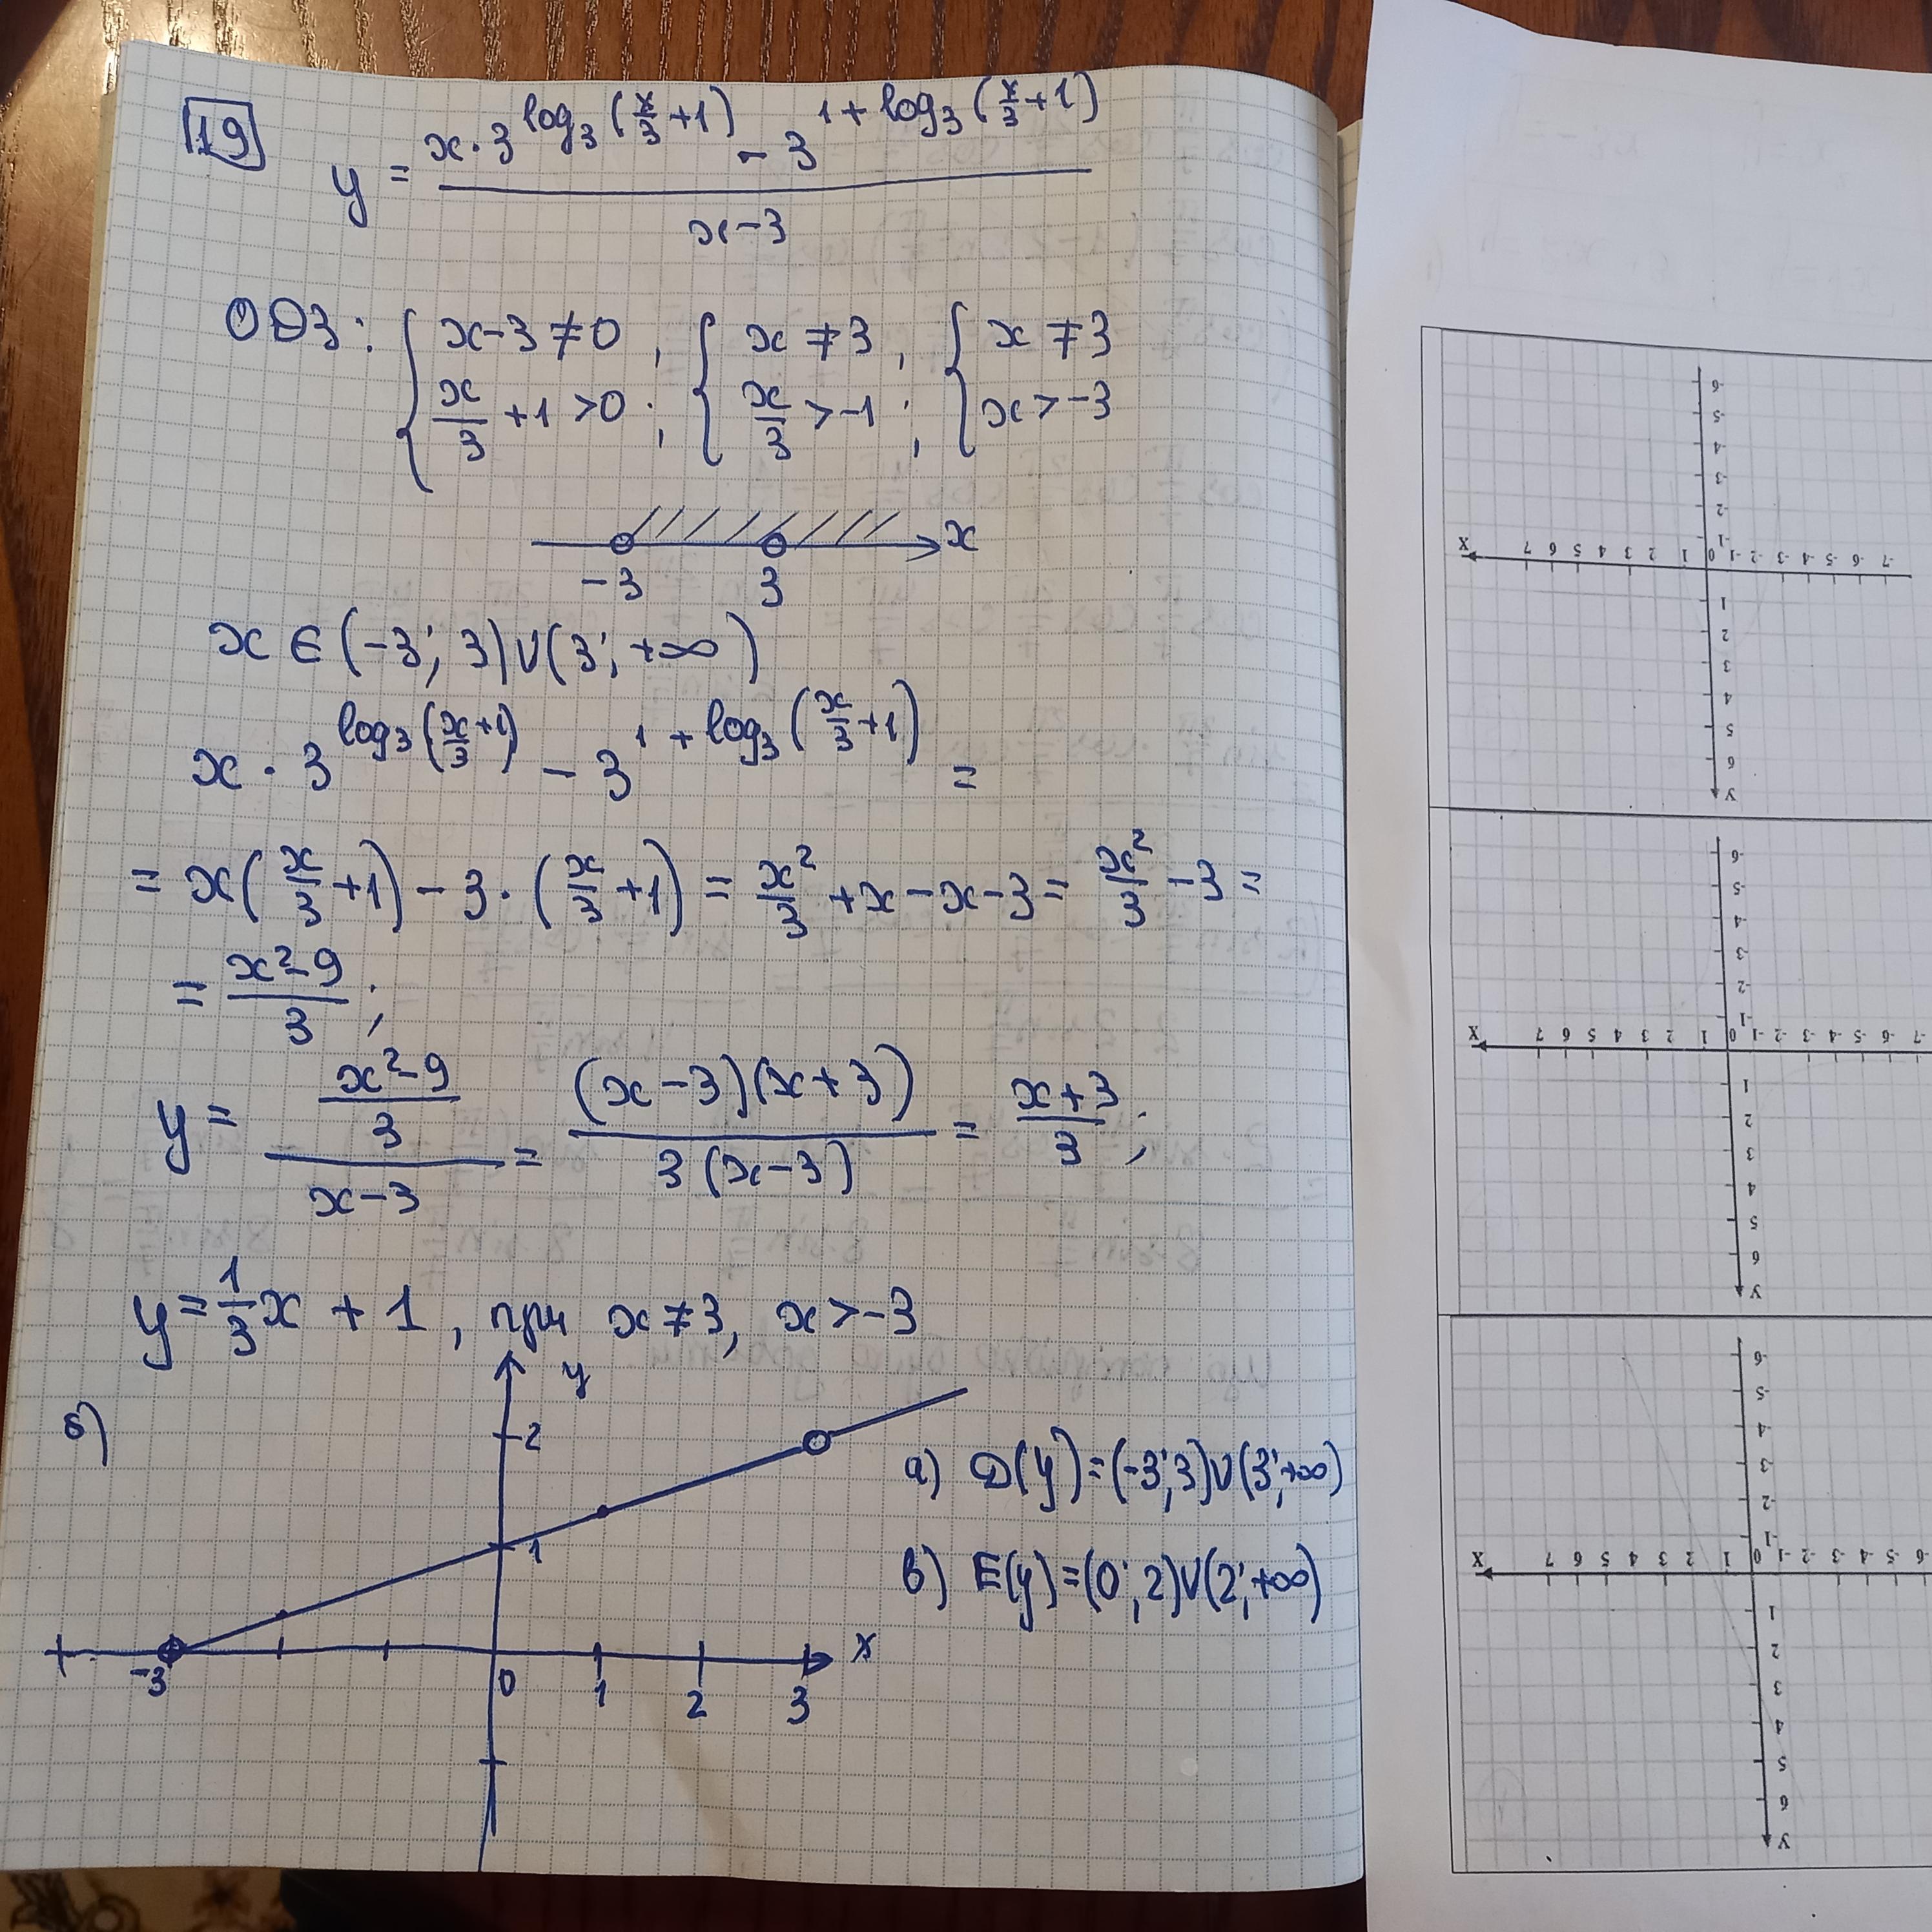 19
y = (x·3^(log₃(x/3+1)) - 3^(1+log₃(x/3+1)))/(x-3)
ОДЗ: { x-3≠0, x/3+1>0; { x≠3, x/3>-1; { x≠3 x>-3
-3 3 x
x∈(-3; 3)∪(3; +∞)
x·3^(log₃(x/3+1)) - 3^(1+log₃(x/3+1)) =
= x(x/3+1) - 3·(x/3+1) = x²/3 + x - x - 3 = x²/3 - 3 =
= (x²-9)/3;
y = ((x²-9)/3)/(x-3) = ((x-3)(x+3))/(3(x-3)) = (x+3)/3;
y = 1/3 x + 1, при x≠3, x>-3
б)
y
2
1
-3 0 1 2 3 x
а) D(y)=(-3; 3)∪(3; +∞)
в) E(y)=(0; 2)∪(2; +∞)
Y
6
5
4
3
2
1
X 7 6 5 4 3 2 1 0 -1 -2 -3 -4 -5 -6 -7
-1
-2
-3
-4
-5
-6
Y
6
5
4
3
2
1
X 7 6 5 4 3 2 1 0 -1 -2 -3 -4 -5 -6 -7
-1
-2
-3
-4
-5
-6
Y
6
5
4
3
2
1
X 7 6 5 4 3 2 1 0 -1 -2 -3 -4 -5 -6
-1
-2
-3
-4
-5
-6